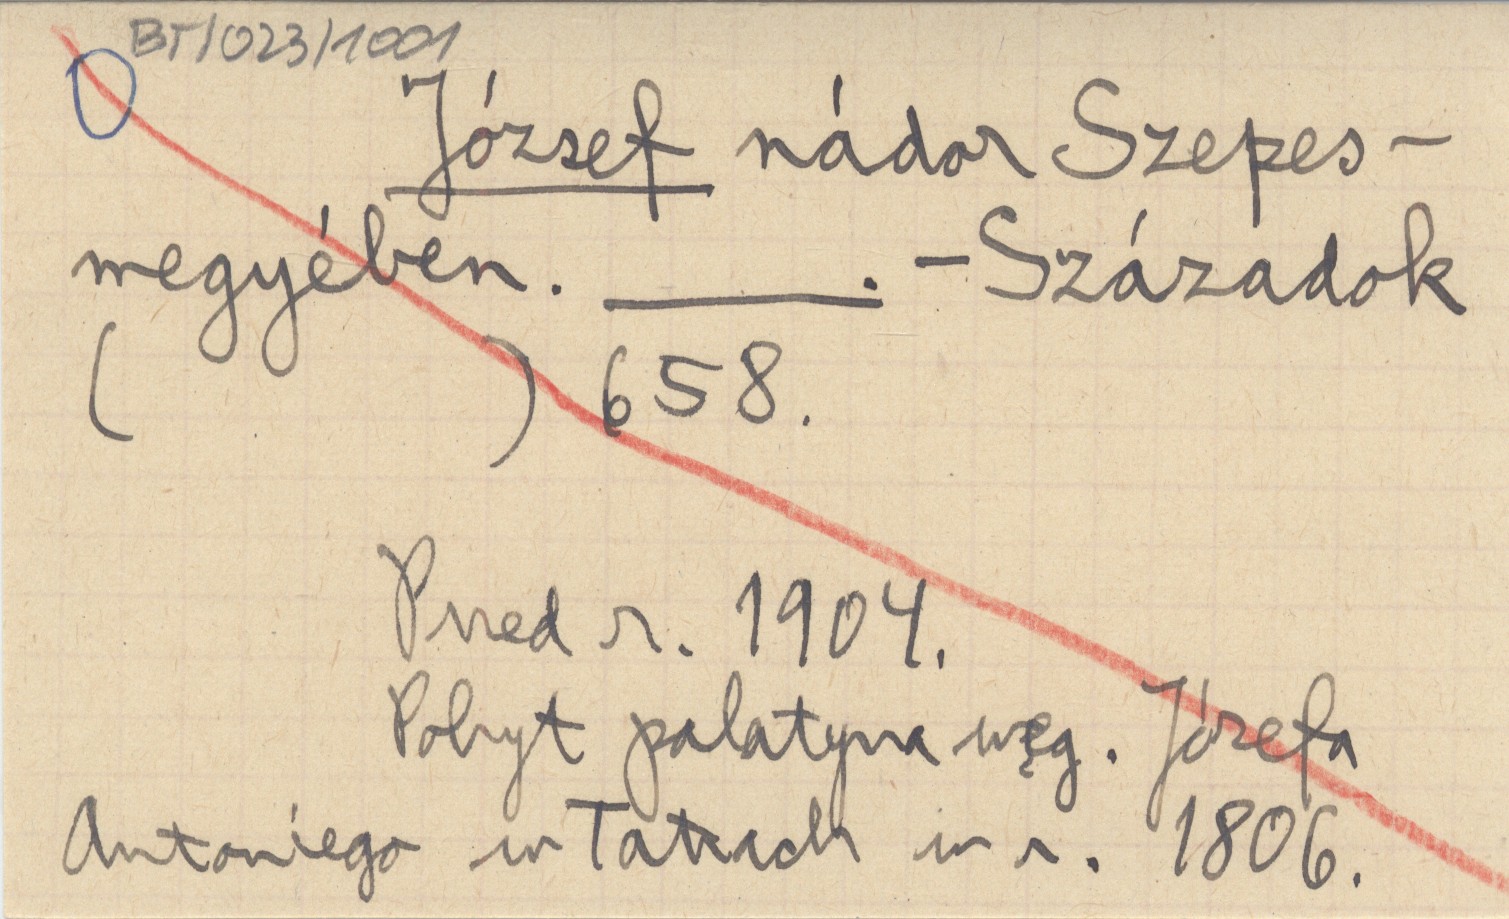 BT/023/1001
József nádor Szepes-
megyében. ______. - Századok
( ) 658.
Przed r. 1904.
Pobyt palatyna węg. Józefa
Antoniego w Tatrach w r. 1806.